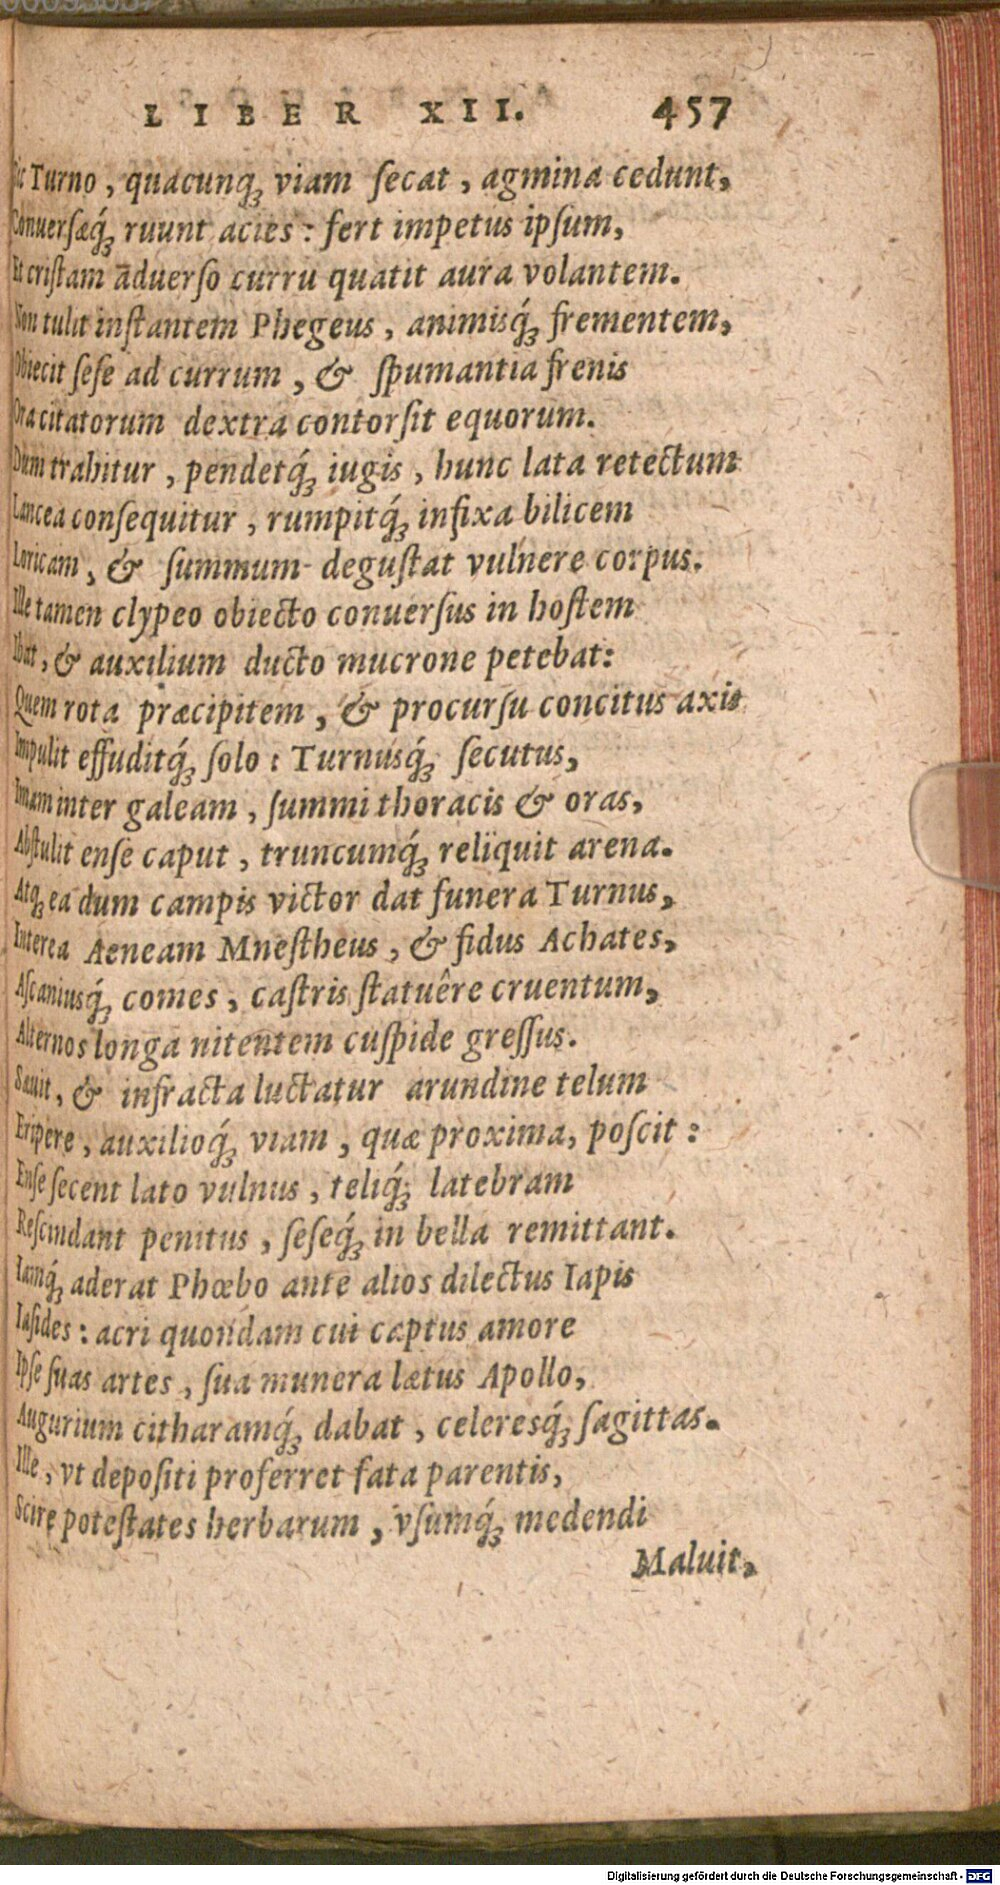 LIBER XII. 457
Sic Turno, quacunq; viam ſecat, agmina cedunt,
Conuerſæq́; ruunt acies: fert impetus ipſum,
Et criſtam aduerſo curru quatit aura volantem.
Non tulit inſtantem Phegeus, animisq́; frementem,
Obiecit ſeſe ad currum, & ſpumantia frenis
Ora citatorum dextra contorſit equorum.
Dum trahitur, pendetq́; iugis, hunc lata retectum
Lancea conſequitur, rumpitq́; infixa bilicem
Loricam, & ſummum deguſtat vulnere corpus.
Ille tamen clypeo obiecto conuerſus in hoſtem
Ibat, & auxilium ducto mucrone petebat:
Quem rota præcipitem, & procurſu concitus axis
Impulit effuditq́; ſolo: Turnusq́; ſecutus,
Imam inter galeam, ſummi thoracis & oras,
Abſtulit enſe caput, truncumq́; reliquit arena.
Atq; ea dum campis victor dat funera Turnus,
Interea Aeneam Mneſtheus, & fidus Achates,
Aſcaniusq́; comes, caſtris ſtatuêre cruentum,
Alternos longa nitentem cuſpide greſſus.
Sæuit, & infracta luctatur arundine telum
Eripere, auxilioq́; viam, quæ proxima, poſcit:
Enſe ſecent lato vulnus, teliq́; latebram
Reſcindant penitus, ſeſeq́; in bella remittant.
Iamq́; aderat Phœbo ante alios dilectus Iapis
Iaſides: acri quondam cui captus amore
Ipſe ſuas artes, ſua munera lætus Apollo,
Augurium citharamq́; dabat, celeresq́; ſagittas.
Ille, vt depoſiti proferret fata parentis,
Scire poteſtates herbarum, vſumq́; medendi
Maluit,
Digitalisierung gefördert durch die Deutsche Forschungsgemeinschaft - DFG